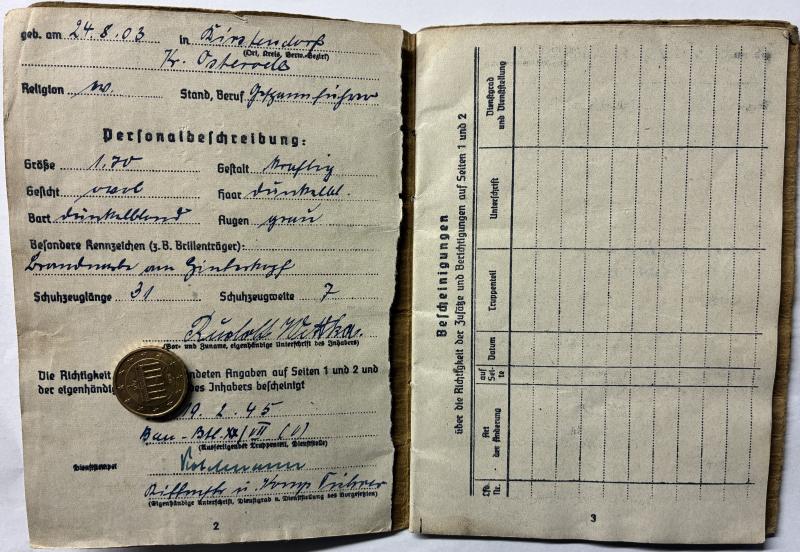 geb. am 24.8.03 in Kirstendorf
(Ort, Kreis, Verw.-Bezirk)
Kr. Osterode
Religion ev. Stand, Beruf Gespannführer
Personalbeschreibung:
Größe 1.70 Gestalt kräftig
Gesicht oval Haar dunkelbl.
Bart dunkelblond Augen grau
Besondere Kennzeichen (z.B. Brillenträger):
Brandnarbe am Hinterkopf
Schuhzeuglänge 31 Schuhzeugweite 7
Rudolf
(Vor- und Zuname, eigenhändige Unterschrift des Inhabers)
Die Richtigkeit ndeten Angaben auf Seiten 1 und 2 und
der eigenhändig des Inhabers bescheinigt
19.2.45
Bau-Btl.
(Ausfertigender Truppenteil, Dienststelle)
Dienststempel
u. Komp. Führer
(Eigenhändige Unterschrift, Dienstgrad u. Dienststellung des Vorgesetzten)
2
Bescheinigungen
über die Richtigkeit der Zusätze und Berichtigungen auf Seiten 1 und 2
Lfd. Nr.
Art der Änderung
auf Seite
Datum
Truppenteil
Unterschrift
Dienstgrad und Dienststellung
3